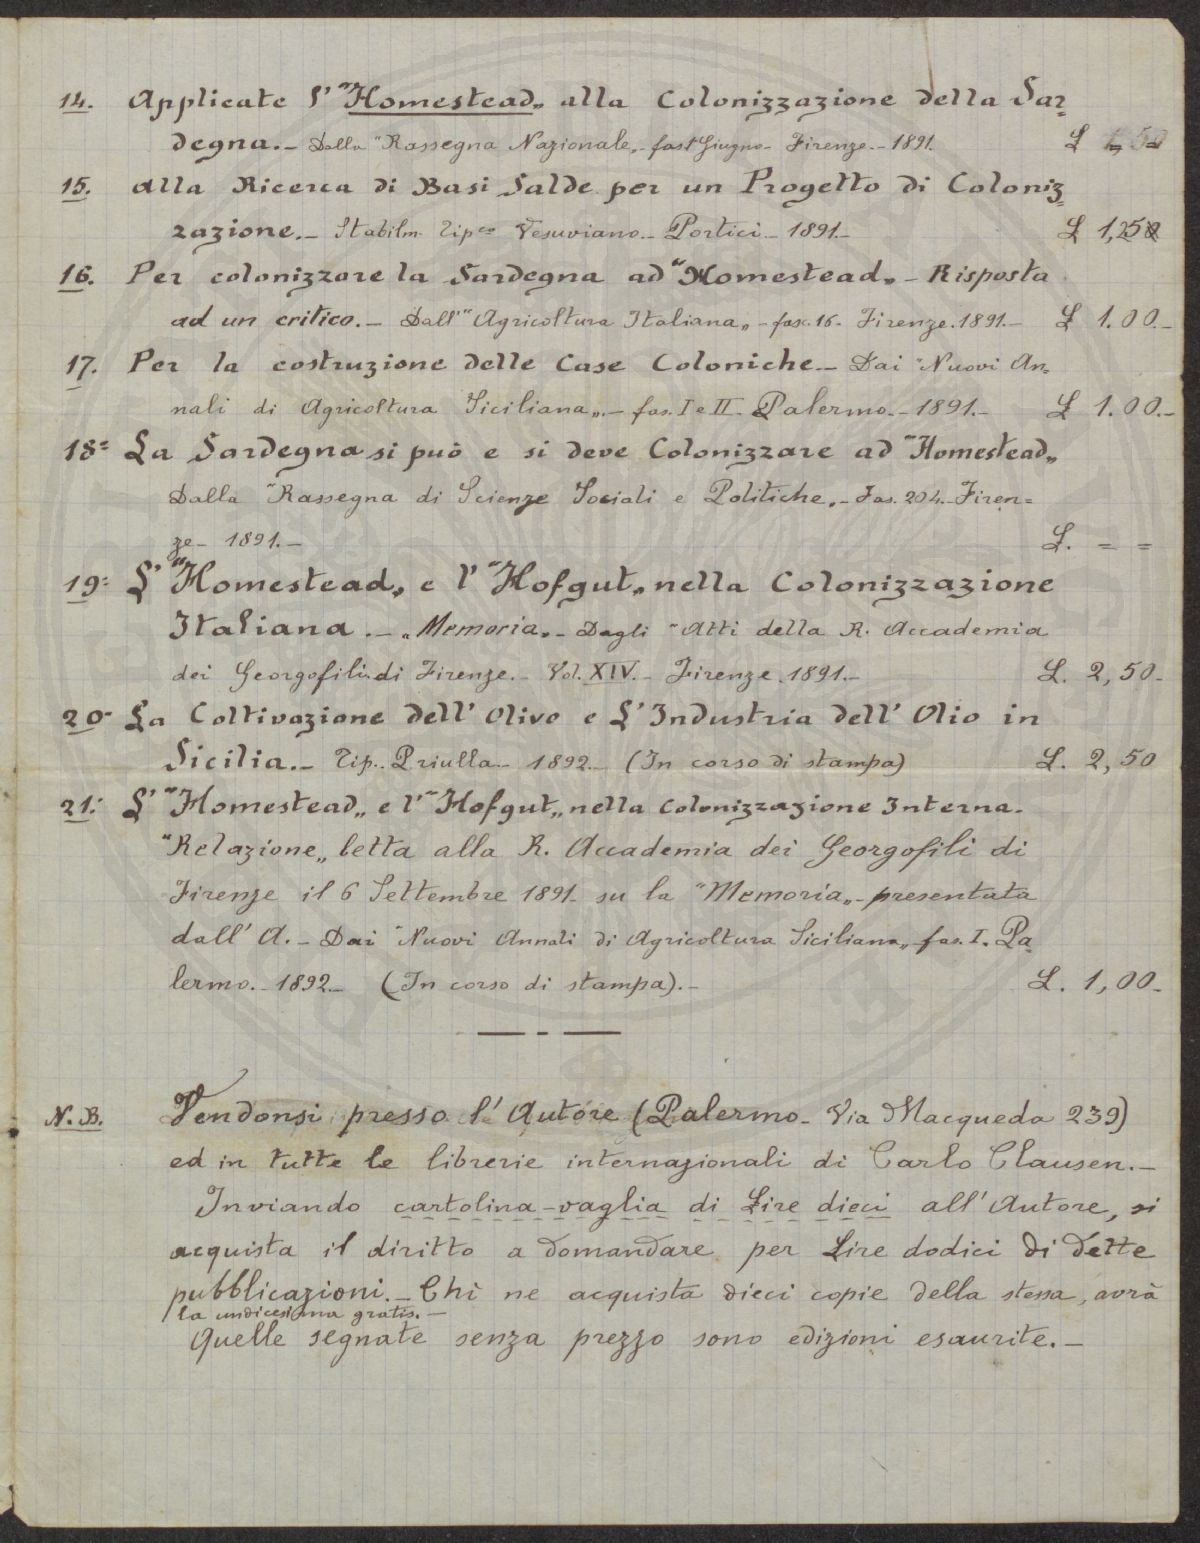 14. Applicate l' "Homestead„ alla Colonizzazione della Sar=
degna.— Dalla "Rassegna Nazionale„- fas.° Giugno- Firenze.- 1891. £ 50
15. Alla Ricerca di Basi Salde per un Progetto di Coloniz=
zazione.— Stabilm. Tip.co Vesuviano.— Portici- 1891.— £ 1,25
16. Per colonizzare la Sardegna ad "Homestead„ – Risposta
ad un critico.— Dall' "Agricoltura Italiana„ - fasc. 16- Firenze. 1891.— £ 1.00.—
17. Per la costruzione delle Case Coloniche.— Dai "Nuovi An=
nali di Agricoltura Siciliana„.— fas. I e II. Palermo.- 1891.— £ 1.00.—
18= La Sardegna si può e si deve Colonizzare ad "Homestead„
Dalla "Rassegna di Scienze Sociali e Politiche„- Fas. 204.- Firen=
ze- 1891.— £. = =
19= L' "Homestead„ e l' "Hofgut„ nella Colonizzazione
Italiana.— „Memoria„- Dagli "Atti della R. Accademia
dei Georgofili„ di Firenze.- Vol. XIV.- Firenze. 1891.— £. 2,50-
20- La Coltivazione dell' Olivo e L'Industria dell' Olio in
Sicilia.— Tip. Priulla- 1892.- (In corso di stampa) £. 2,50
21. L' "Homestead„ e l' "Hofgut„ nella Colonizzazione Interna.
"Relazione„ letta alla R. Accademia dei Georgofili di
Firenze il 6 Settembre 1891- su la "Memoria„- presentata
dall' A.- Dai "Nuovi Annali di Agricoltura Siciliana„ fas. I. Pa=
lermo.- 1892- (In corso di stampa).- £. 1,00-
N.B. Vendonsi presso l' Autore (Palermo- Via Macqueda 239)
ed in tutte le librerie internazionali di Carlo Clausen.—
Inviando cartolina-vaglia di Lire dieci all' Autore, si
acquista il diritto a domandare per Lire dodici di dette
pubblicazioni.- Chi ne acquista dieci copie della stessa, avrà
la undicesima gratis.—
Quelle segnate senza prezzo sono edizioni esaurite.—